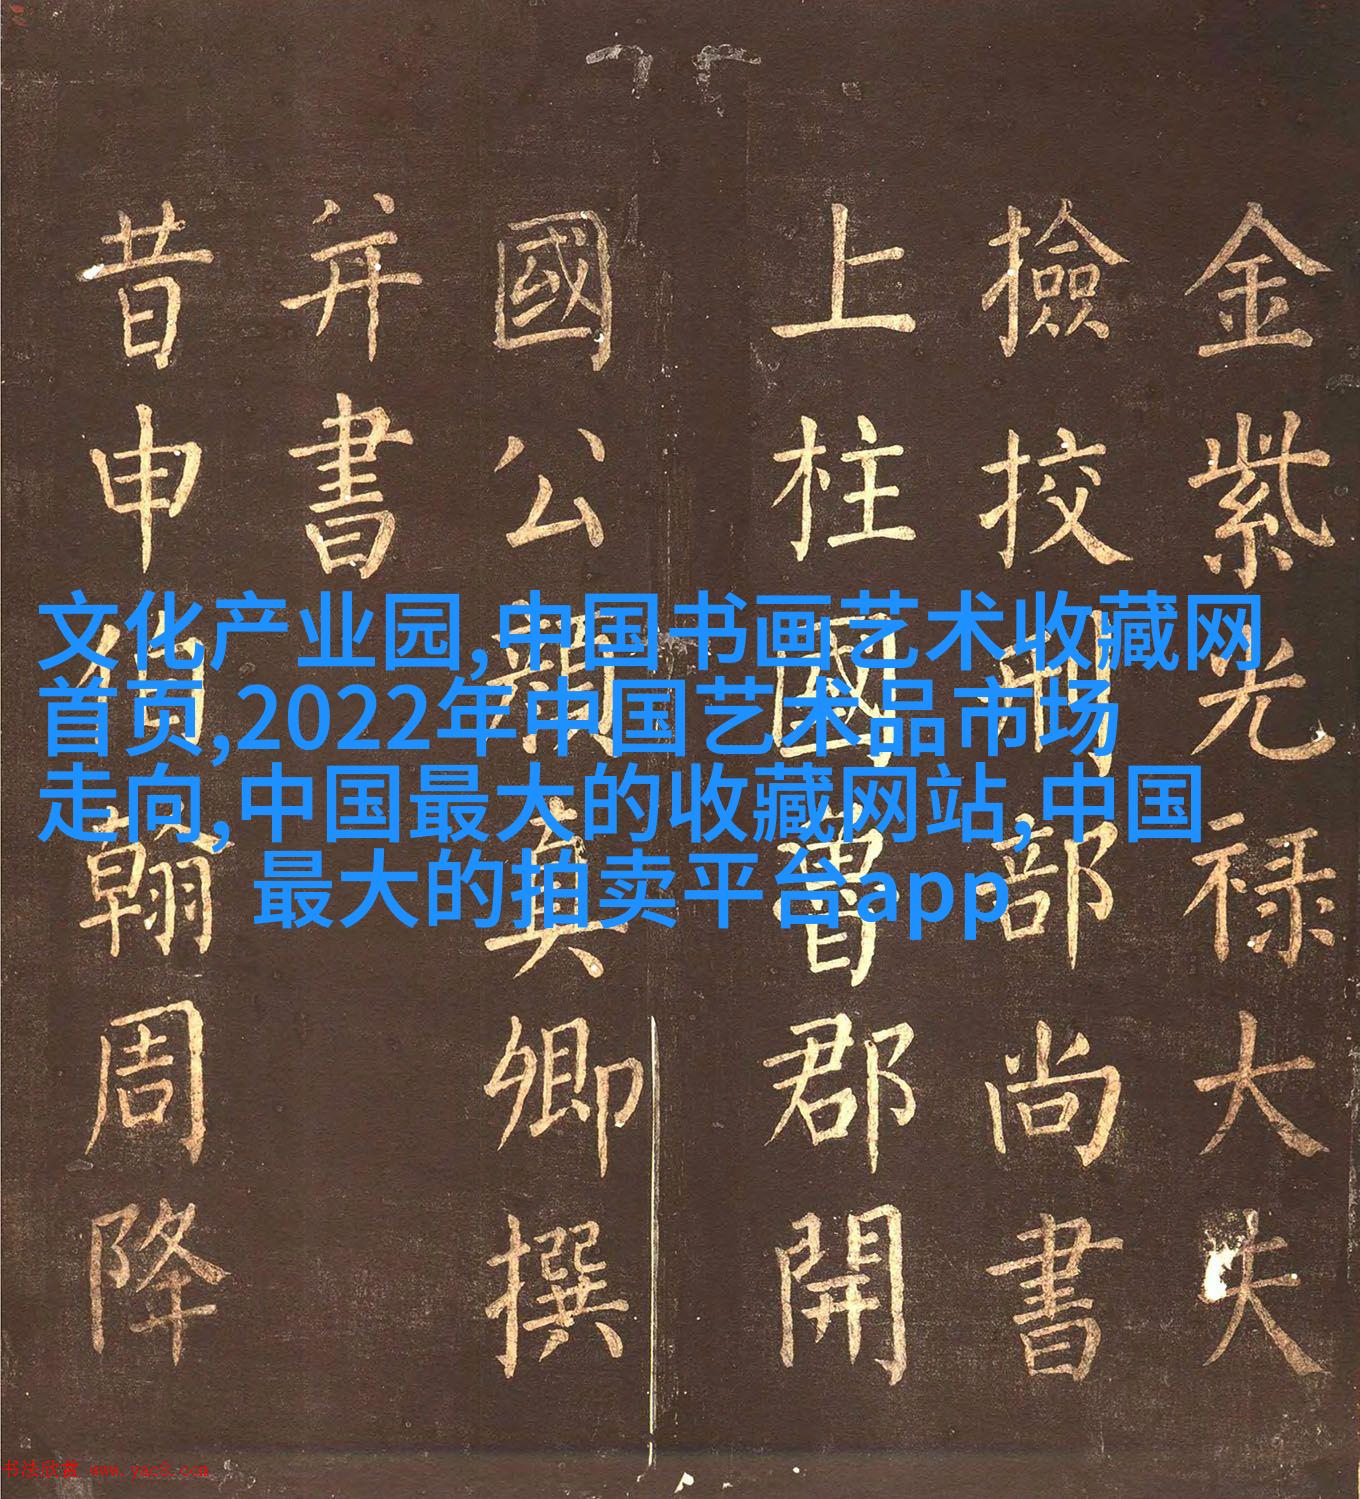 金紫光禄大夫
撿挍刑部尚書
上柱國魯郡開
國公顏真卿撰
并書
昔申伯翰周降
文化产业园,中国书画艺术收藏网
首页,2022年中国艺术品市场
走向,中国最大的收藏网站,中国
最大的拍卖平台app
书法欣赏 www.yac8.com